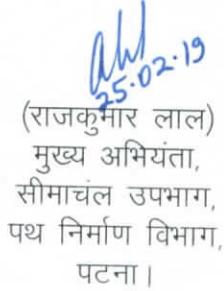 25.02.19
(राजकुमार लाल)
मुख्य अभियंता,
सीमाचंल उपभाग,
पथ निर्माण विभाग,
पटना।